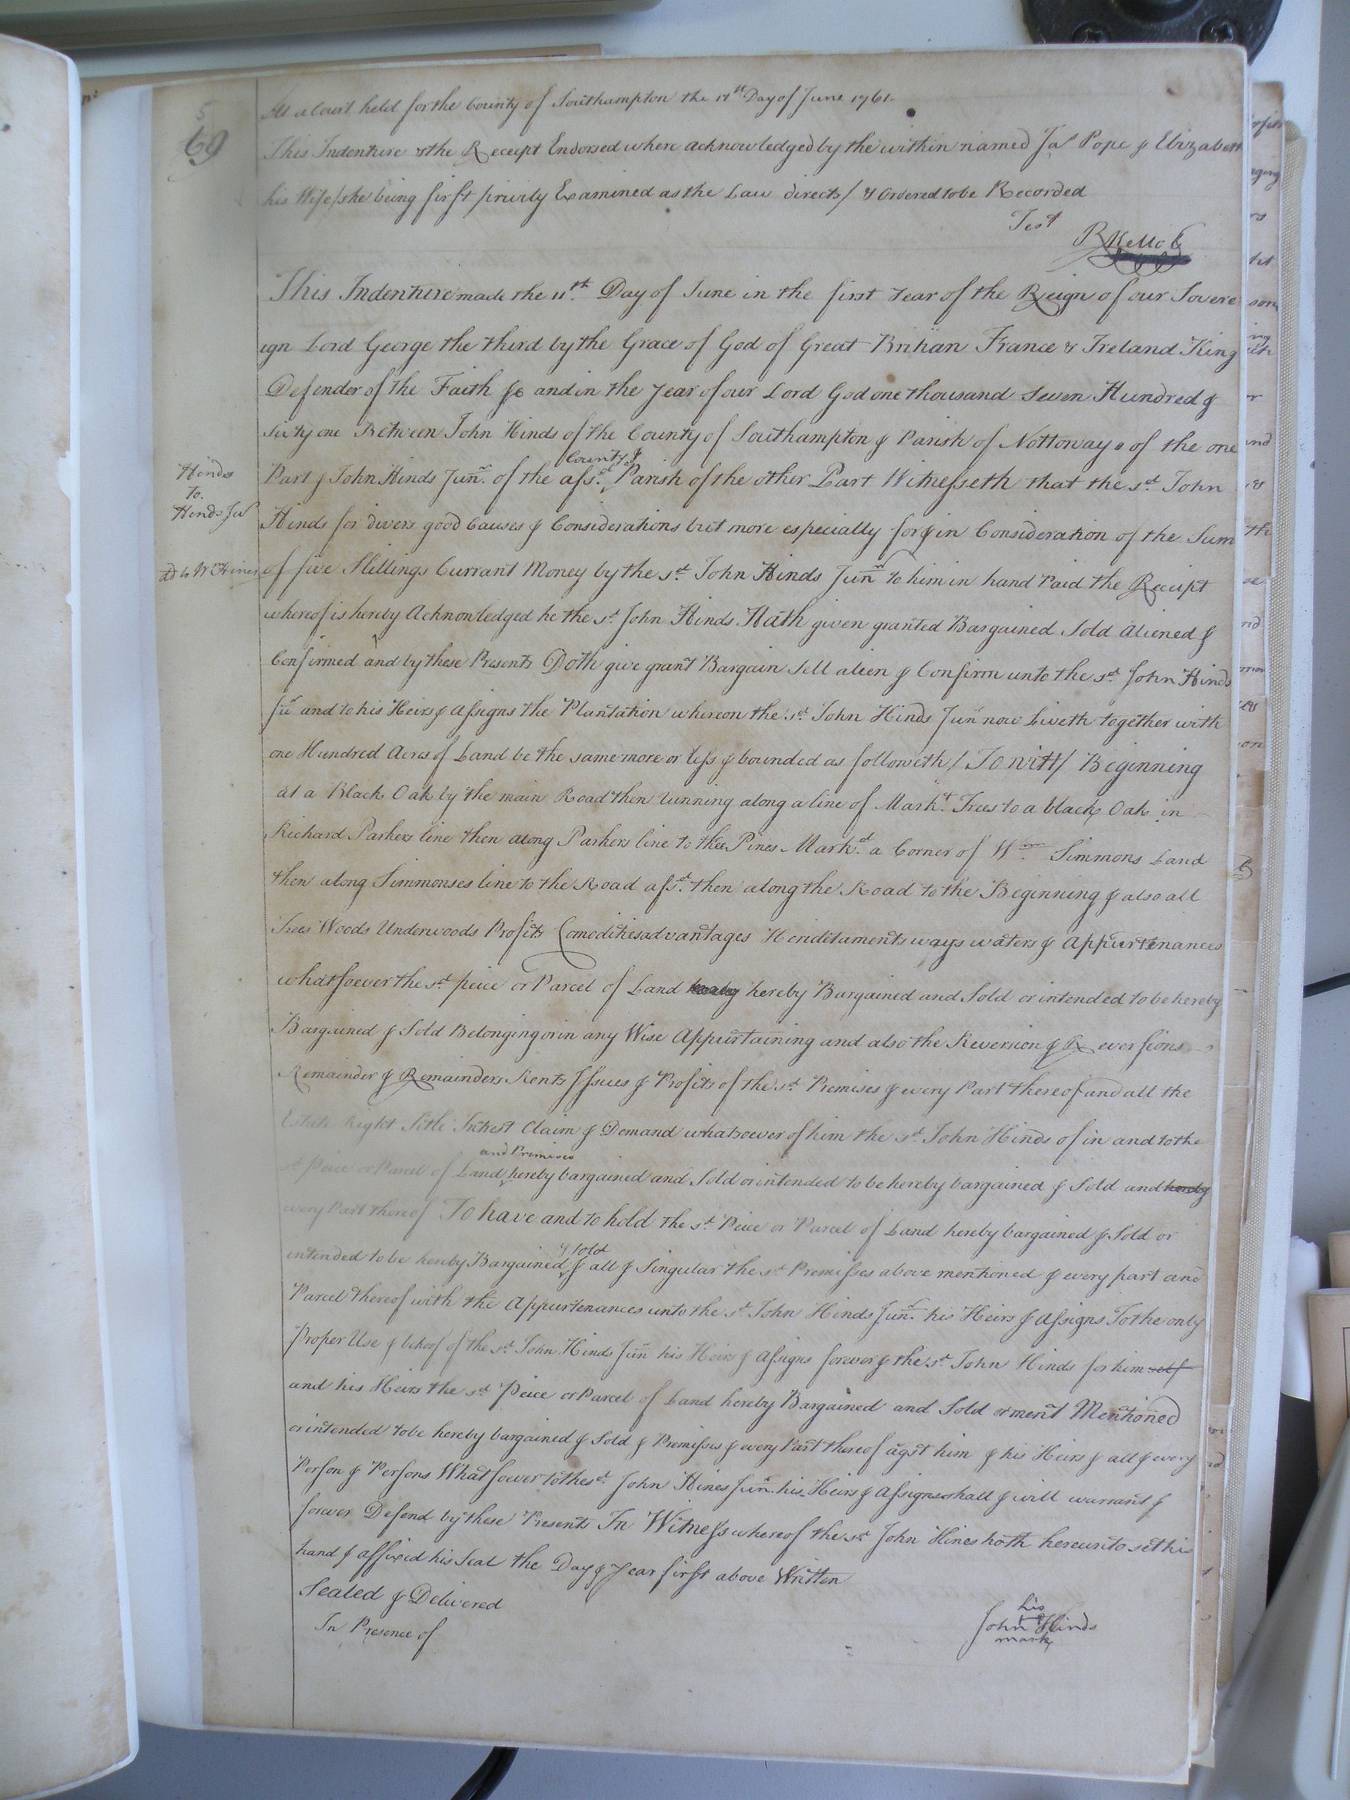 5
69
At a Court held for the County of Southampton the 11th Day of June 1761.
This Indenture & the Receipt Endorsed where acknowledged by the within named Jas Pope & Elizabeth
his Wife /she being first privily Examined as the Law directs/ & Ordered to be Recorded
Test
R Kello C
This Indenture made the 11th. Day of June in the first Year of the Reign of our Sovere
ign Lord George the third by the Grace of God of Great Britian France & Ireland King
Defender of the Faith &c and in the Year of our Lord God one thousand Seven Hundred &
Sixty one Between John Hinds of the County of Southampton & Parish of Nottoway of the one
Part & John Hinds Junr. of the afsd. County & Parish of the other Part Witnesseth that the sd. John
Hinds
to.
Hinds Jur
Hinds for divers good Causes & Considerations but more especially for & in Consideration of the Sum
Dd to Wm Hines
of five Shillings Currant Money by the sd. John Hinds Junr to him in hand Paid the Receipt
whereof is hereby Acknowledged he the sd. John Hinds Hath given granted Bargained Sold Aliened &
Confirmed and by these Presents Doth give grant Bargain Sell alien & Confirm unto the sd. John Hinds
Jur and to his Heirs & Assigns the Plantation whereon the sd. John Hinds Junr now Liveth together with
one Hundred Acres of Land be the same more or less & bounded as followeth / To witt / Beginning
at a Black Oak by the main Road then running along a line of Markt. Trees to a black Oak in
Richard Parkers line then along Parkers line to thee Pines Markd. a Corner of Wm. Simmons Land
then along Simmonses line to the Road afsd. then along the Road to the Beginning & also all
Trees Woods Underwoods Profits Comodities advantages Heriditaments ways waters & Appurtenances
whatsoever the sd. peice or Parcel of Land hereby Bargained and Sold or intended to be hereby
Bargained & Sold Belonging or in any Wise Appurtaining and also the Reversion & Reversions
Remainder & Remainders Rents Issues & Profits of the sd. Premises & every Part thereof and all the
Estate Right Title Intrest Claim & Demand whatsoever of him the sd. John Hinds of in and to the
sd Peice or Parcel of Land and Premises hereby bargained and Sold or intended to be hereby bargained & Sold and hereby
every Part thereof To have and to hold the sd. Peice or Parcel of Land hereby bargained & Sold or
intended to be hereby Bargained & sold & all & Singular the sd. Premisses above mentioned & every part and
Parcel thereof with the Appurtenances unto the sd. John Hinds Junr. his Heirs & Assigns To the only
Proper Use & behoof of the sd. John Hinds Junr his Heirs & Assigns forever & the sd. John Hinds for him self
and his Heirs the sd. Peice or Parcel of Land hereby Bargained and Sold or ment Mentioned
or intended to be hereby bargained & Sold & Premisses & every Part thereof agst him & his Heirs & all & every
Person & Persons Whatsoever to the sd. John Hines Junr. his Heirs & Assigns shall & will warrant &
forever Defend by these Presents In Witness whereof the sd. John Hines hath hereunto set his
hand & affixed his Seal the Day & Year first above Written
Sealed & Delivered
In Presence of
his
John Hinds
mark